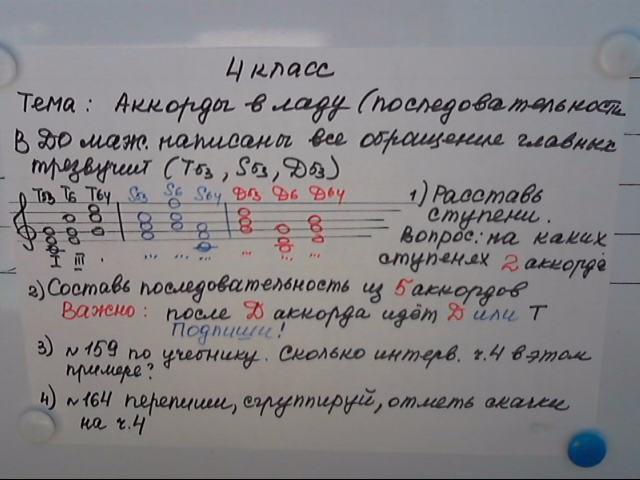 4 класс
Тема: Аккорды в ладу (последовательности
В До маж. написаны все обращение главных
трезвучий (Т53, S53, Д53)
Т53 Т6 Т64 S53 S6 S64 Д53 Д6 Д64
I III . ... ... ... ... ... ...
1) Расставь
ступени.
Вопрос: на каких
ступенях 2 аккорда
2) Составь последовательность из 5 аккордов
Важно: после Д аккорда идёт Д или Т
Подпиши!
3) №159 по учебнику. Сколько интерв. ч.4 в этом
примере?
4) №164 перепиши, сгруппируй, отметь скачки
на ч.4